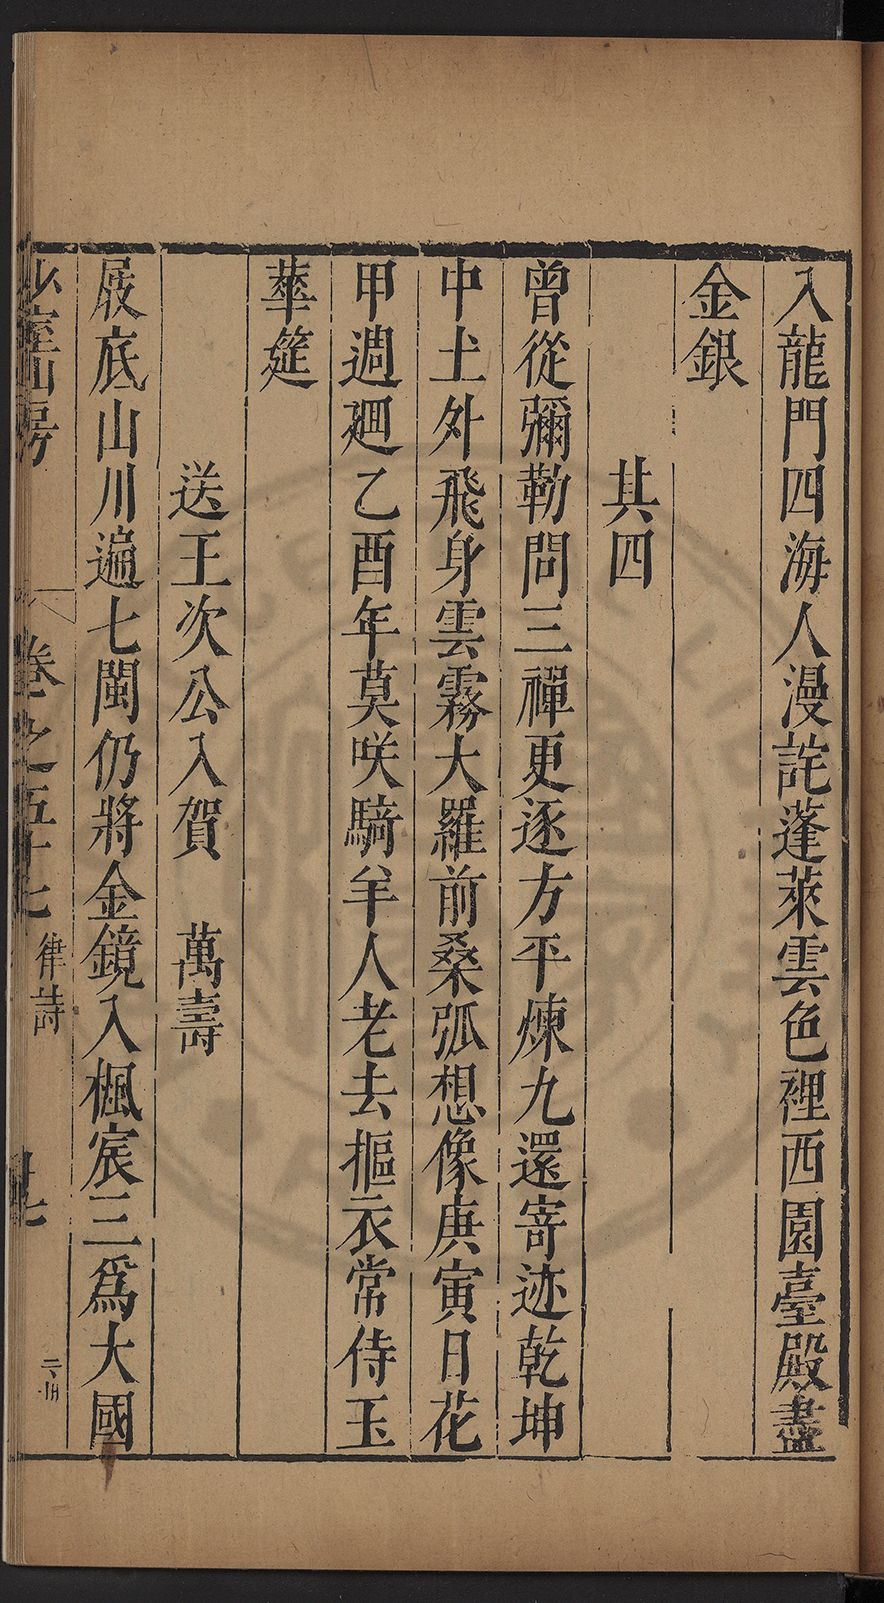 入龍門四海人漫詫蓬萊雲色裡西園臺殿盡
金銀
其四
曾從彌勒問三禪更逐方平煉九還寄迹乾坤
中土外飛身雲霧大羅前桑弧想像庚寅日花
甲週廻乙酉年莫咲騎羊人老去摳衣常侍玉
華筵
送王次公入賀　萬壽
屐底山川遍七閩仍將金鏡入楓宸三爲大國
少室山房　卷之五十七　律詩　廿七